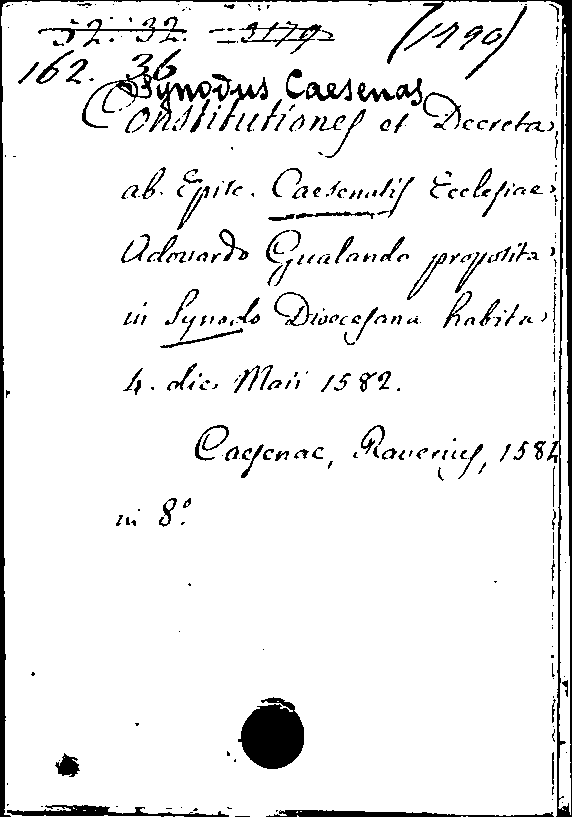 52. 32. 3179 (1990)
162. 36
Synodus Caesenas
Constitutiones et Decreta
ab Episc. Caesenatis Ecclesiae
Adouardo Gualando proposita
in Synodo Dioecesana habita
4. die Maii 1582.
Caesenae, Raverius, 1582
in 8°